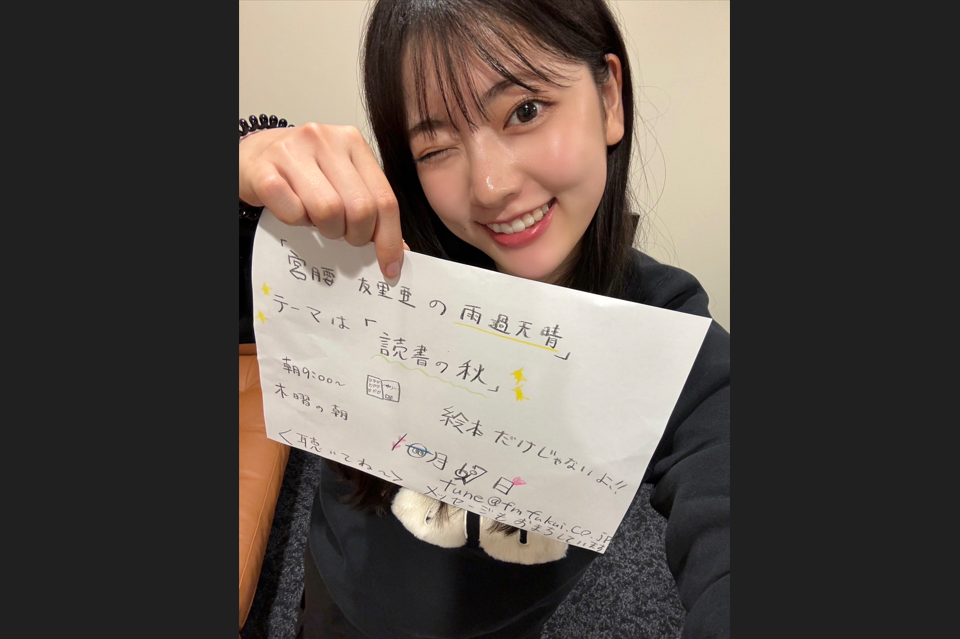 「宮腰 友里亜の雨過天晴」
テーマは「読書の秋」
朝9:00～
木曜の朝
絵本だけじゃないよ!!
＜聴いてね～＞
月 日
tune@fmfukui.co.jp
メッセージもおまちしています